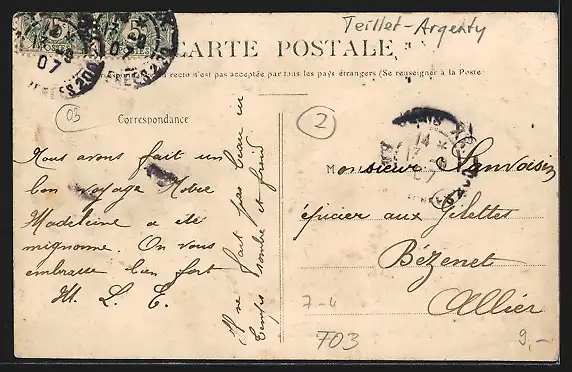 Teillet-Argenty
CARTE POSTALE
recto n'est pas acceptée par tous les pays étrangers (Se renseigner à la Poste
03
2
Correspondance
Nous avons fait un
bon voyage Notre
Madeleine a été
mignonne. On vous
embrasse bien fort
M. L. E.
Il ne fait pas beau un
temps sombre et froid
Monsieur Sauvaisin
épicier aux Gilettes
Bézenet
Allier
7-4
703
9,-